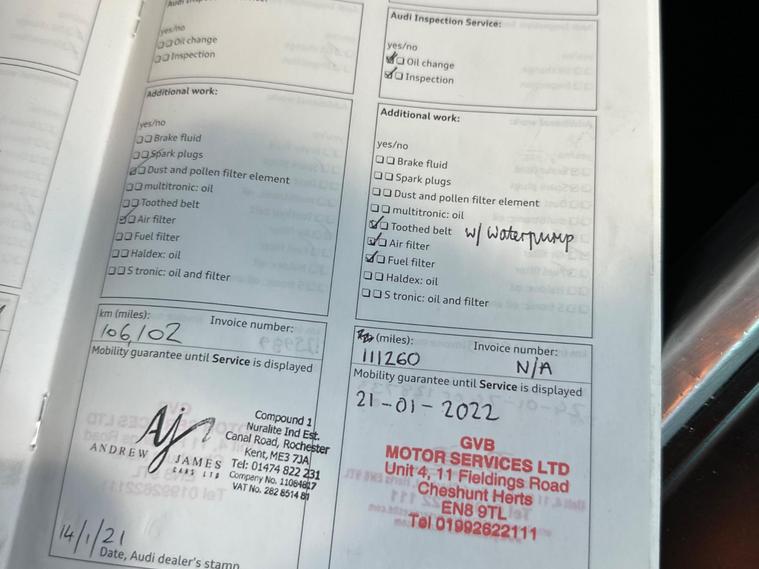 yes/no
Oil change
Inspection
Additional work:
yes/no
Brake fluid
Spark plugs
Dust and pollen filter element
multitronic: oil
Toothed belt
Air filter
Fuel filter
Haldex: oil
S tronic: oil and filter
km (miles):
Invoice number:
106,102
Mobility guarantee until Service is displayed
Aj
ANDREW JAMES
CARS LTD
Compound 1
Nuralite Ind Est.
Canal Road, Rochester
Kent, ME3 7JA
Tel: 01474 822 231
Company No. 11064817
VAT No. 282 8514 81
14/1/21
Date, Audi dealer's stamp
Audi Inspection Service:
yes/no
Oil change
Inspection
Additional work:
yes/no
Brake fluid
Spark plugs
Dust and pollen filter element
multitronic: oil
Toothed belt w/ Waterpump
Air filter
Fuel filter
Haldex: oil
S tronic: oil and filter
(miles):
Invoice number:
111260
N/A
Mobility guarantee until Service is displayed
21-01-2022
GVB
MOTOR SERVICES LTD
Unit 4, 11 Fieldings Road
Cheshunt Herts
EN8 9TL
Tel 01992622111